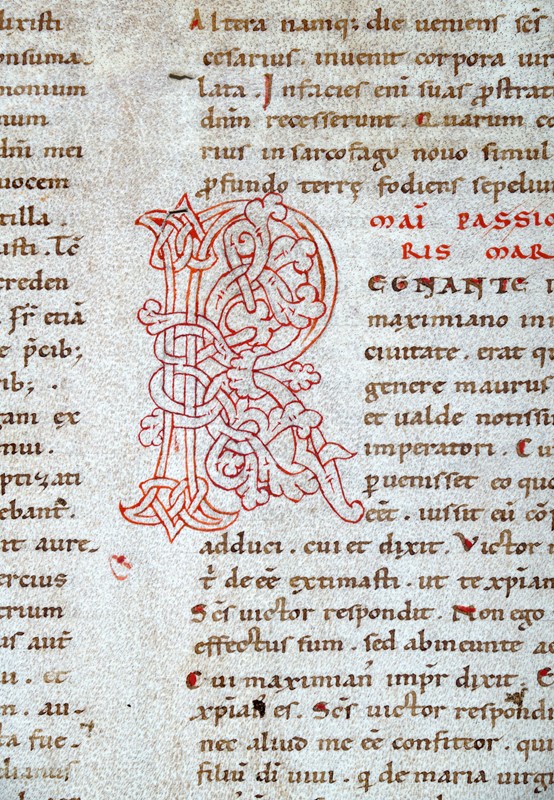 lixisti
onsuma-
monium
num
dñi mei
uocem
tilla .
usti . Tc̄
creden
. Sr̄ etiā
e p̄cib;
rib; .
gam ex
nui .
ptizati
ebant̄ .
rt aure-
ercius
trium
us aut̄
ui . et
n . au-
ta fue-
dianus
Altera namq; die ueniens sc̄s
cesarius . inuenit corpora uir
lata . Infacies eni suas ꝓstrati
dnm recesserunt . Quarum co
rius insarcofago nouo simul
ꝓfundo terrę fodiens sepeliui
MAII PASSIO
RIS MAR
REGNANTE
maximiano in
ciuitate . erat qu
genere maurus
et ualde notissi
imperatori . Cu
ꝑuenisset eo quo
eēt . iussit eū cō
adduci . cui et dixit . Victor
t̄ de eē extimasti . ut te xp̄ian
Sc̄s uictor respondit . Non ego
effectus sum . sed abineunte ae
Cui maximian̄ imp̄r dixit .
xp̄ian es . Sc̄s uictor respondi
nec aliud me eē confiteor . qui
filiū dī uiui . q de maria uirgi